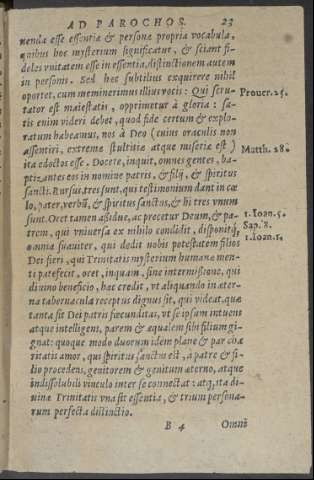 AD PAROCHOS. 23
nenda esse essentiæ & personæ propria vocabula,
quibus hoc mysterium significatur, & sciant fi-
deles vnitatem esse in essentia, distinctionem autem
in personis. Sed hæc subtilius exquirere nihil
oportet, cum meminerimus illius vocis: Qui scru- Prouer. 25.
tator est maiestatis, opprimetur à gloria: sa-
tis enim videri debet, quod fide certum & explo-
ratum habeamus, nos à Deo (cuius oraculis non
assentiri, extremæ stultitiæ atque miseriæ est)
ita edoctos esse. Docete, inquit, omnes gentes, ba- Matth. 28.
ptizantes eos in nomine patris, & filij, & spiritus
sancti. Rursus, tres sunt, qui testimonium dant in cæ
lo, pater, verbũ, & spiritus sanctus, & hi tres vnum
sunt. Oret tamen aßidue, ac precetur Deum, & pa- 1. Ioan. 5.
trem, qui vniuersa ex nihilo condidit, disponitq́; Sap. 8.
omnia suauiter, qui dedit nobis potestatem filios 1. Ioan. 1.
Dei fieri, qui Trinitatis mysterium humanæ men-
ti patefecit, oret, inquam, sine intermißione, qui
diuino beneficio, hæc credit, vt aliquando in æter-
na tabernacula receptus dignus sit, qui videat, quæ
tanta sit Dei patris fœcunditas, vt se ipsum intuens
atque intelligens, parem & æqualem sibi filium gi-
gnat: quoque modo duorum idem plane & par cha
ritatis amor, qui spiritus sanctus est, a patre & fi-
lio procedens, genitorem & genitum æterno, atque
indissolubili vinculo inter se connectat: atq́, ita di-
uinæ Trinitatis vna sit essentia, & trium persona-
rum perfecta distinctio.
B 4 Omni